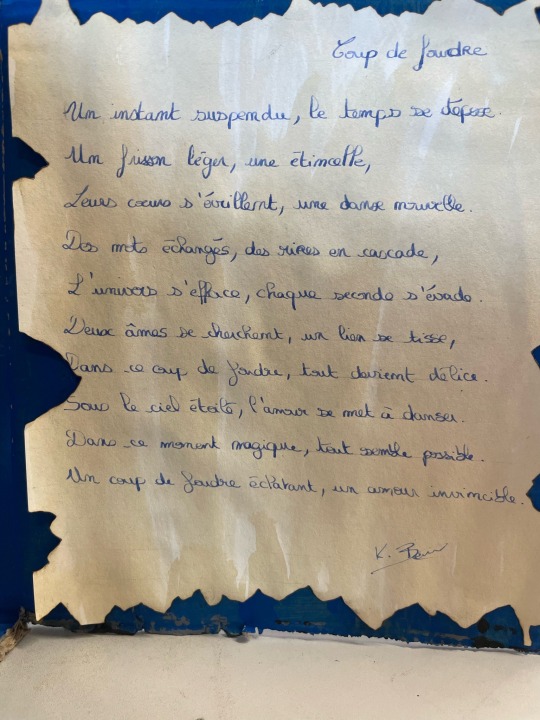 Coup de foudre
Un instant suspendu, le temps se dépose.
Un frisson léger, une étincelle,
Leurs cœurs s'éveillent, une danse nouvelle.
Des mots échangés, des rires en cascade,
L'univers s'efface, chaque seconde s'évade.
Deux âmes se cherchent, un lien se tisse,
Dans ce coup de foudre, tout devient délice.
Sous le ciel étoilé, l'amour se met à danser.
Dans ce moment magique, tout semble possible.
Un coup de foudre éclatant, un amour invincible.
K.